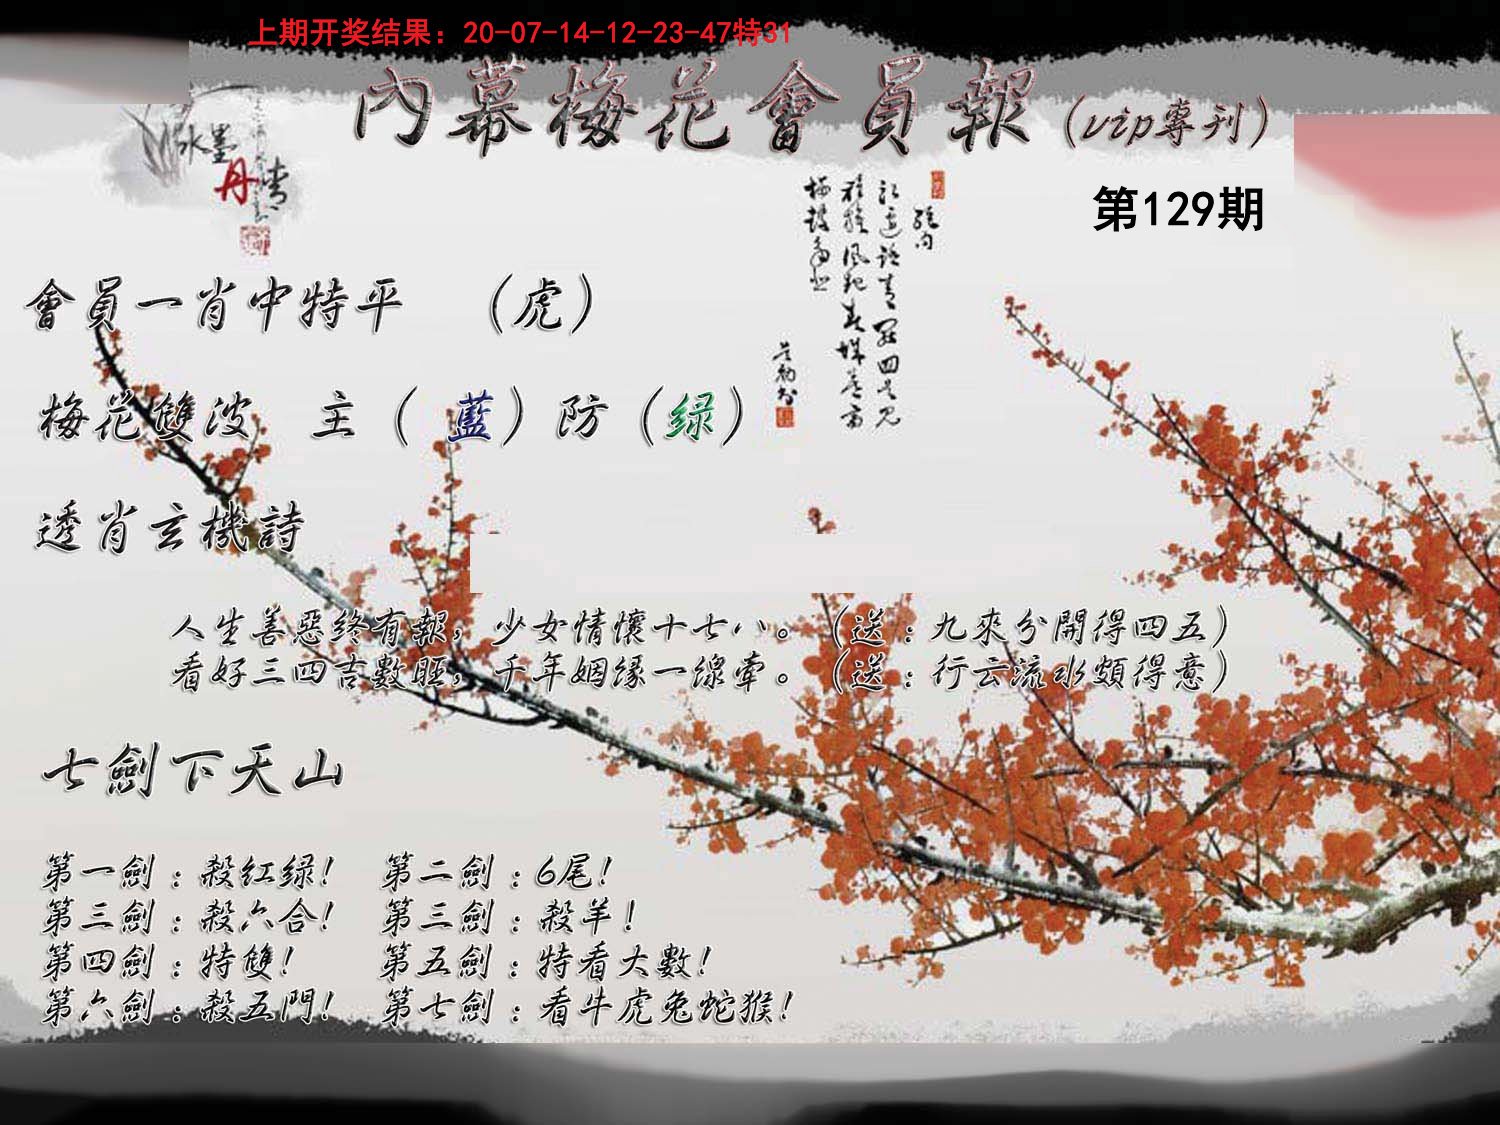 上期开奖结果：20-07-14-12-23-47特31
內幕梅花會員報(vip專刊)
水墨
丹青
第129期
會員一肖中特平 (虎)
梅花雙波 主(藍)防(绿)
透肖玄機詩
人生善惡終有報，少女情懷十七八。(送：九來分開得四五)
看好三四吉數旺，千年姻缘一線牽。(送：行云流水頗得意)
七劍下天山
第一劍：殺紅绿! 第二劍：6尾!
第三劍：殺六合! 第三劍：殺羊!
第四劍：特雙! 第五劍：特看大數!
第六劍：殺五門! 第七劍：看牛虎兔蛇猴!